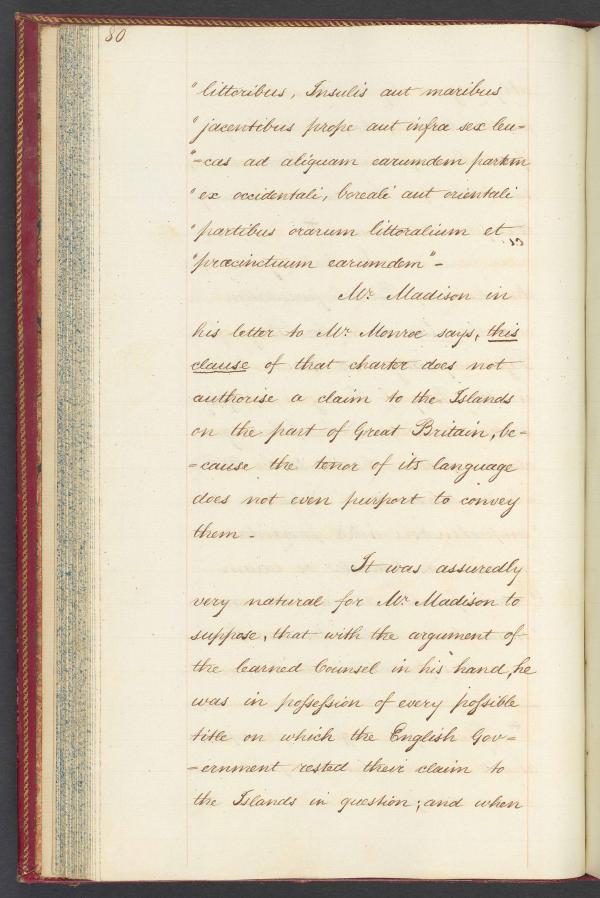 80
"littoribus, Insulis aut maribus
"jacentibus prope aut infra sex leu-
"-cas ad aliquam earumdem partem
"ex occidentali, boreali aut orientali
"partibus orarum littoralium et
"præcinctuum earumdem"-
Mr. Madison in
his letter to Mr. Monroe says, this
clause of that charter does not
authorise a claim to the Islands
on the part of Great Britain, be-
-cause the tenor of its language
does not even purport to convey
them -
It was assuredly
very natural for Mr. Madison to
suppose, that with the argument of
the learned Counsel in his hand, he
was in poſseſsion of every poſsible
title on which the English Gov=
-ernment rested their claim to
the Islands in question; and when